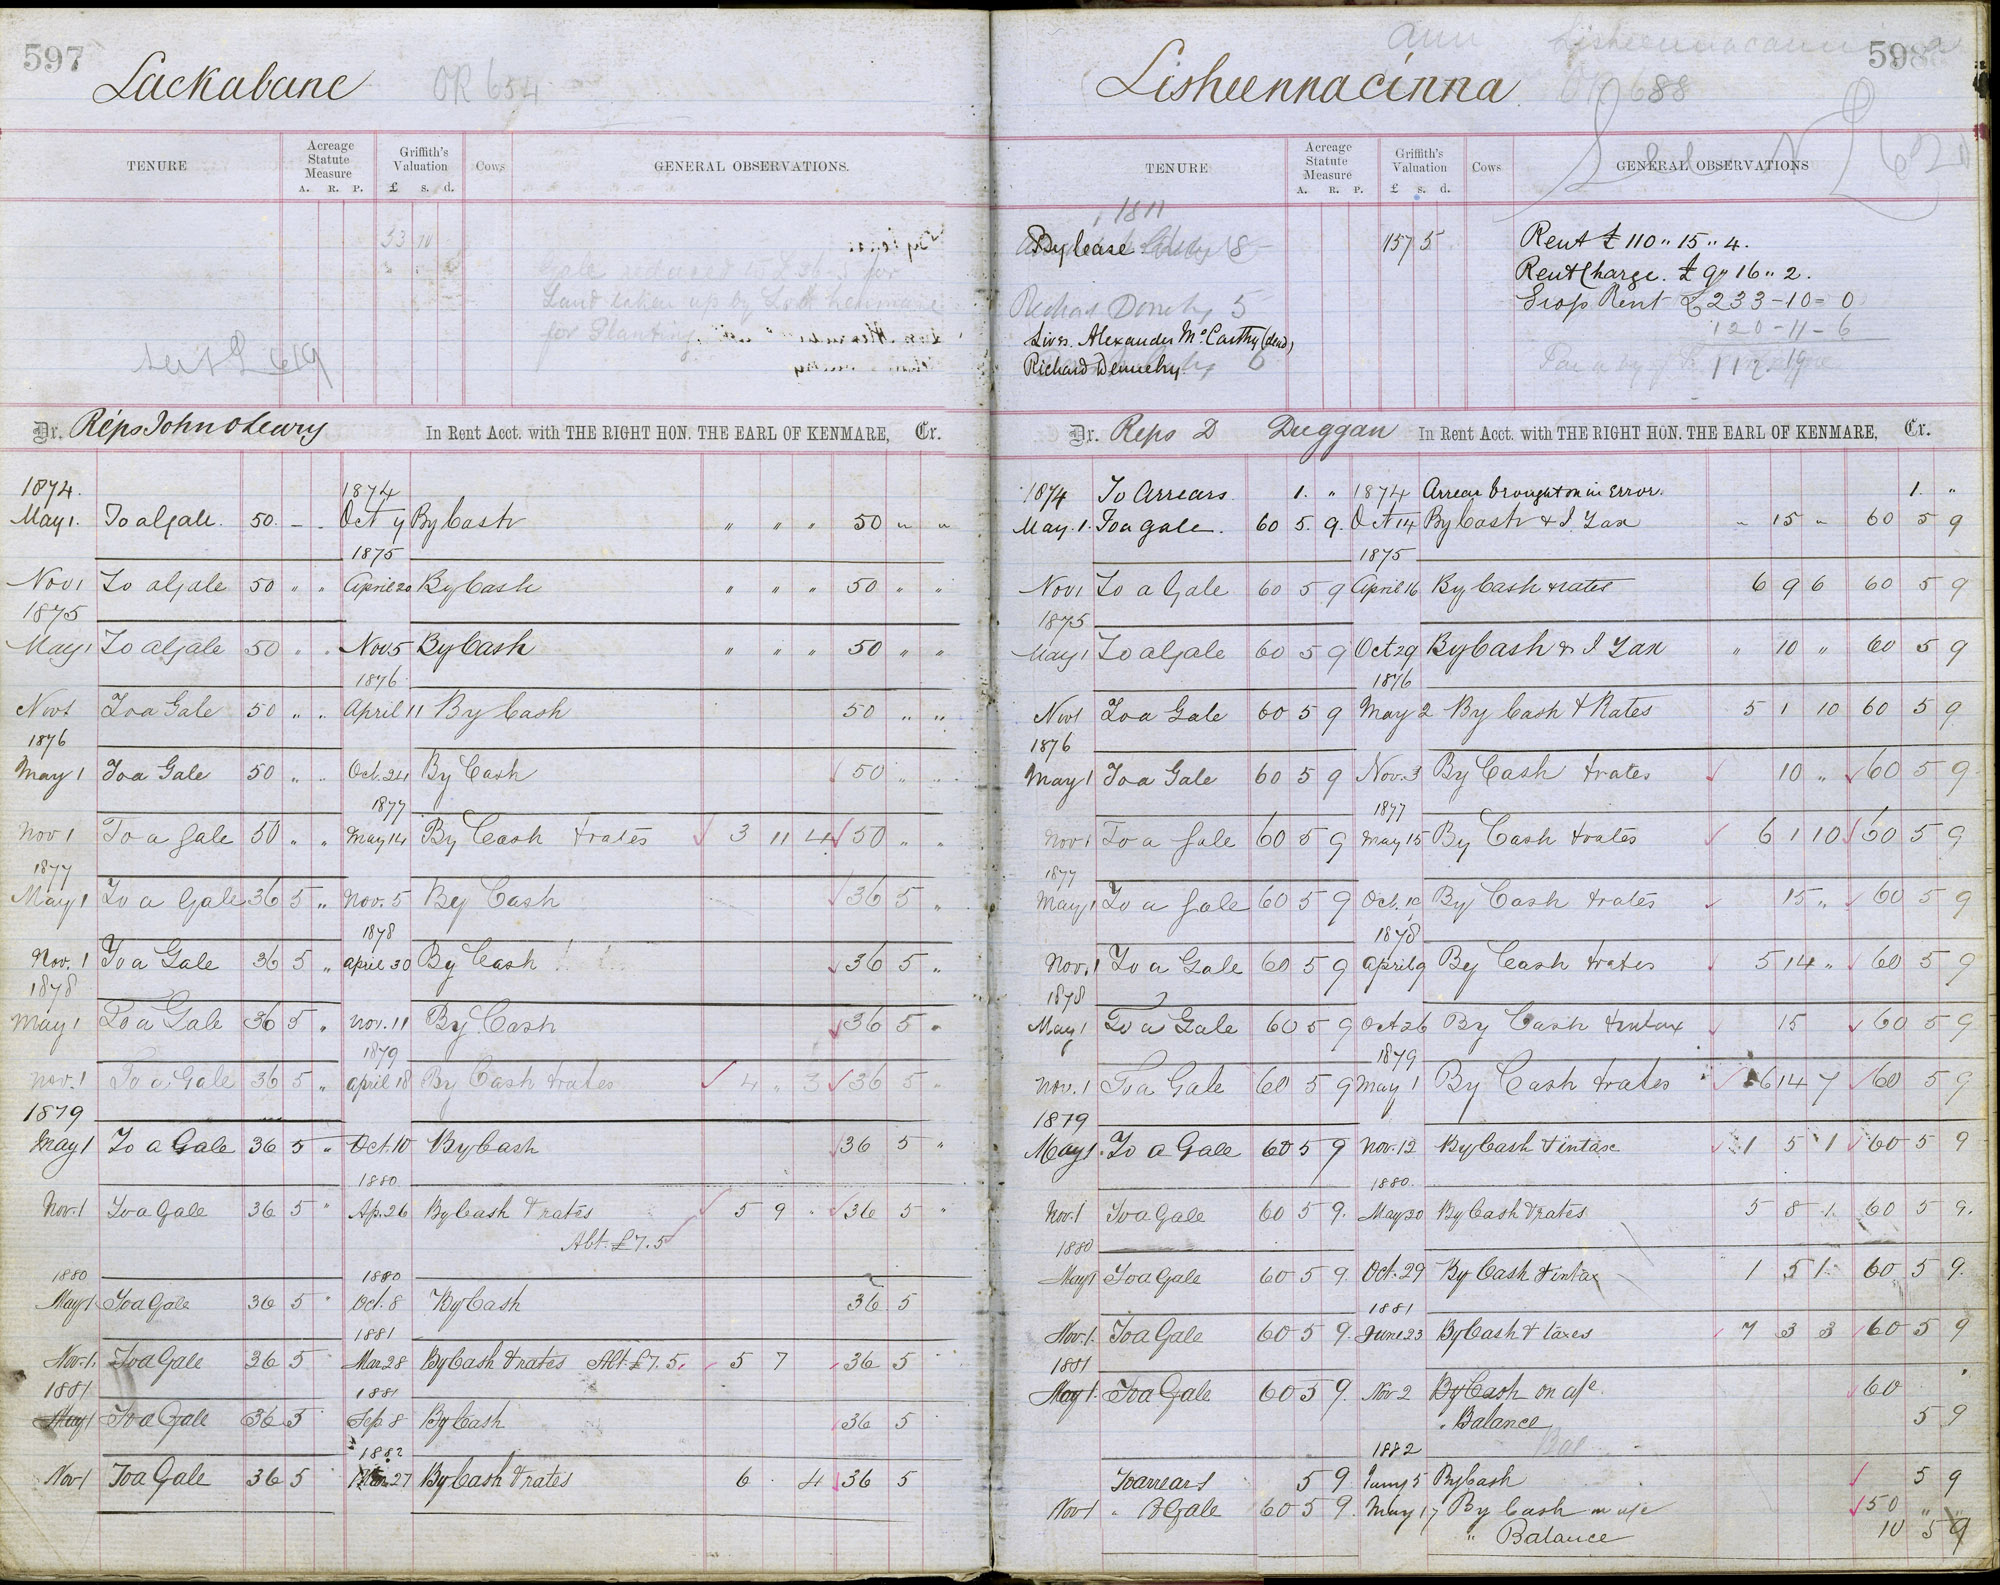 597
Lackabane OR 654
TENURE Acreage Statute Measure A. R. P. Griffith's Valuation £ s. d. Cows GENERAL OBSERVATIONS.
53 10
Gale reduced to £36.5 for
Land taken up by Lord Kenmare
for Planting
See L 619
Dr. Reps John O Leary In Rent Acct. with THE RIGHT HON. THE EARL OF KENMARE, Cr.
1874. 1874
May 1. To a Gale. 50 - - Oct 7 By Cash " " " 50 " "
1875
Nov 1 To a Gale 50 " " April 20 By Cash " " " 50 " "
1875
May 1 To a Gale 50 " " Nov 5 By Cash " " " 50 " "
1876
Nov 1 To a Gale 50 " " April 11 By Cash 50 " "
1876
May 1 To a Gale 50 " " Oct. 24 By Cash 50 " "
1877
Nov 1 To a Gale 50 " " May 14 By Cash & rates 3 11 4 50 " "
1877
May 1 To a Gale 36 5 " Nov. 5 By Cash 36 5 "
1878
Nov. 1 To a Gale 36 5 " April 30 By Cash 36 5 "
1878
May 1 To a Gale 36 5 " Nov. 11 By Cash 36 5 "
1879
Nov. 1 To a Gale 36 5 " April 18 By Cash & rates 4 " 3 36 5 "
1879
May 1 To a Gale 36 5 " Oct. 10 By Cash 36 5 "
1880
Nov. 1 To a Gale 36 5 " Ap. 26 By Cash & rates 5 9 " 36 5 "
Abt. £7.5
1880 1880
May 1 To a Gale 36 5 " Oct. 8 By Cash 36 5
1881
Nov. 1. To a Gale 36 5 Mar 28 By Cash & rates Abt. £7.5. 5 7 36 5
1881 1881
May 1 To a Gale 36 5 Sep 8 By Cash 36 5
1882
Nov 1 To a Gale 36 5 Mar 27 By Cash & rates 6 . 4 36 5
598
Lisheennacinna OR 688
See N L 620
TENURE Acreage Statute Measure A. R. P. Griffith's Valuation £ s. d. Cows GENERAL OBSERVATIONS
1811
By lease 157 5 Rent £ 110 " 15 " 4.
Rent Charge. £ 9 " 16 " 2.
Richard 5 Rent £ 233 - 10 = 0
120 - 11 - 6
Lives. Alexander McCarthy (dead)
Richard Dennehy.
Dr. Reps D Duggan In Rent Acct. with THE RIGHT HON. THE EARL OF KENMARE, Cr.
1874 To Arrears 1. " 1874 Arrear brought on in Error. 1. "
May. 1. To a gale. 60 5. 9. Oct 14 By Cash & I Tax " 15 " 60 5 9
1875
Nov 1 To a Gale 60 5 9 April 16 By Cash & rates 6 9 6 60 5 9
1875
May 1 To a Gale 60 5 9 Oct 29 By Cash & I Tax " 10 " 60 5 9
1876
Nov 1 To a Gale 60 5 9 May 2 By Cash & Rates 5 1 10 60 5 9
1876
May 1 To a Gale 60 5 9 Nov. 3 By Cash & rates 10 " 60 5 9
1877
Nov 1 To a Gale 60 5 9 May 15 By Cash & rates 6 1 10 60 5 9
1877
May 1 To a Gale 60 5 9 Oct. 10 By Cash & rates 15 " 60 5 9
1878
Nov. 1 To a Gale 60 5 9 April 9 By Cash & rates 5 14 " 60 5 9
1878
May 1 To a Gale 60 5 9 Oct 26 By Cash & intax 15 60 5 9
1879
Nov. 1 To a Gale 60 5 9 May 1 By Cash & rates 6 14 7 60 5 9
1879
May 1. To a Gale 60 5 9 Nov. 12 By Cash & intax 1 5 1 60 5 9
1880.
Nov. 1 To a Gale 60 5 9. May 20 By Cash & rates 5 8 1. 60 5 9.
1880
May 1 To a Gale 60 5 9. Oct. 29 By Cash & intax 1 5 1. 60 5 9.
1881
Nov. 1. To a Gale 60 5 9. June 23 By Cash & taxes 7 3 3 60 5 9
1881
May 1. To a Gale 60 5 9. Nov 2 By Cash on a/c. 60
" Balance 5 9
1882 Bal
To arrears 5 9 Jany 5 By Cash 5 9
Nov 1 " A Gale 60 5 9. May 17 By Cash on a/c 50 "
" Balance 10 5 9